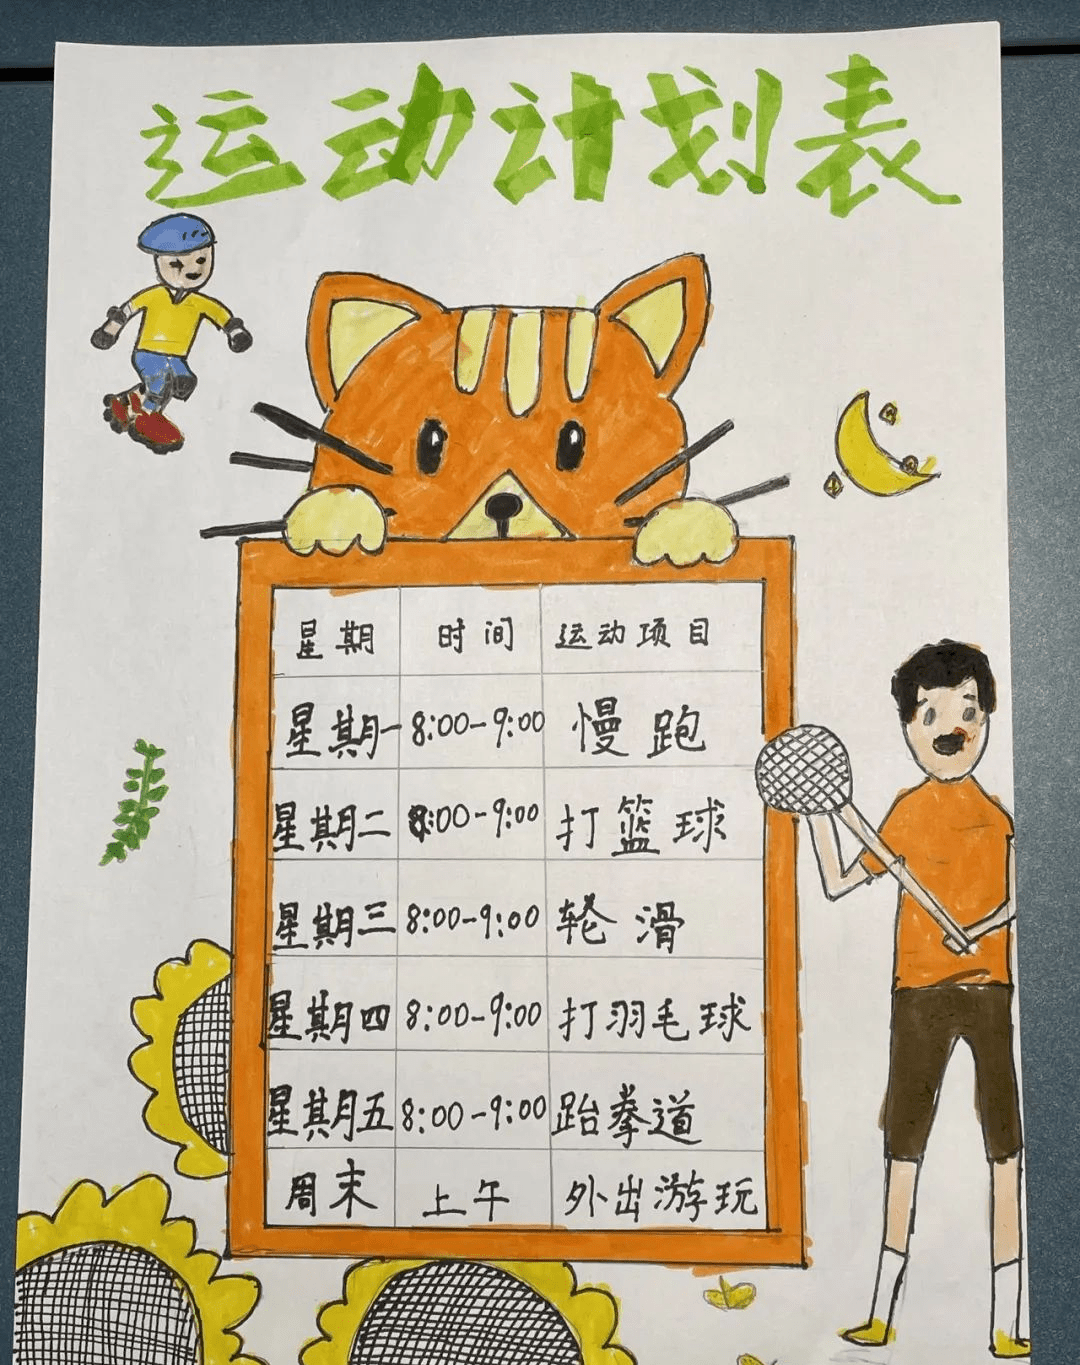 运动计划表
星期 时间 运动项目
星期一 8:00-9:00 慢跑
星期二 8:00-9:00 打篮球
星期三 8:00-9:00 轮滑
星期四 8:00-9:00 打羽毛球
星期五 8:00-9:00 跆拳道
周末 上午 外出游玩